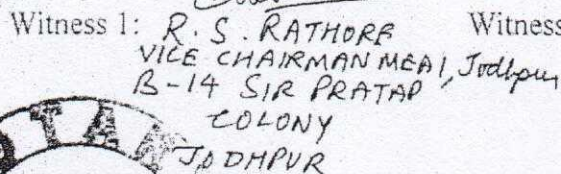 Witness 1: R. S. RATHORE Witness
VICE CHAIRMAN MEAI, Jodhpur
B-14 SIR PRATAP
COLONY
JODHPUR
OTAR